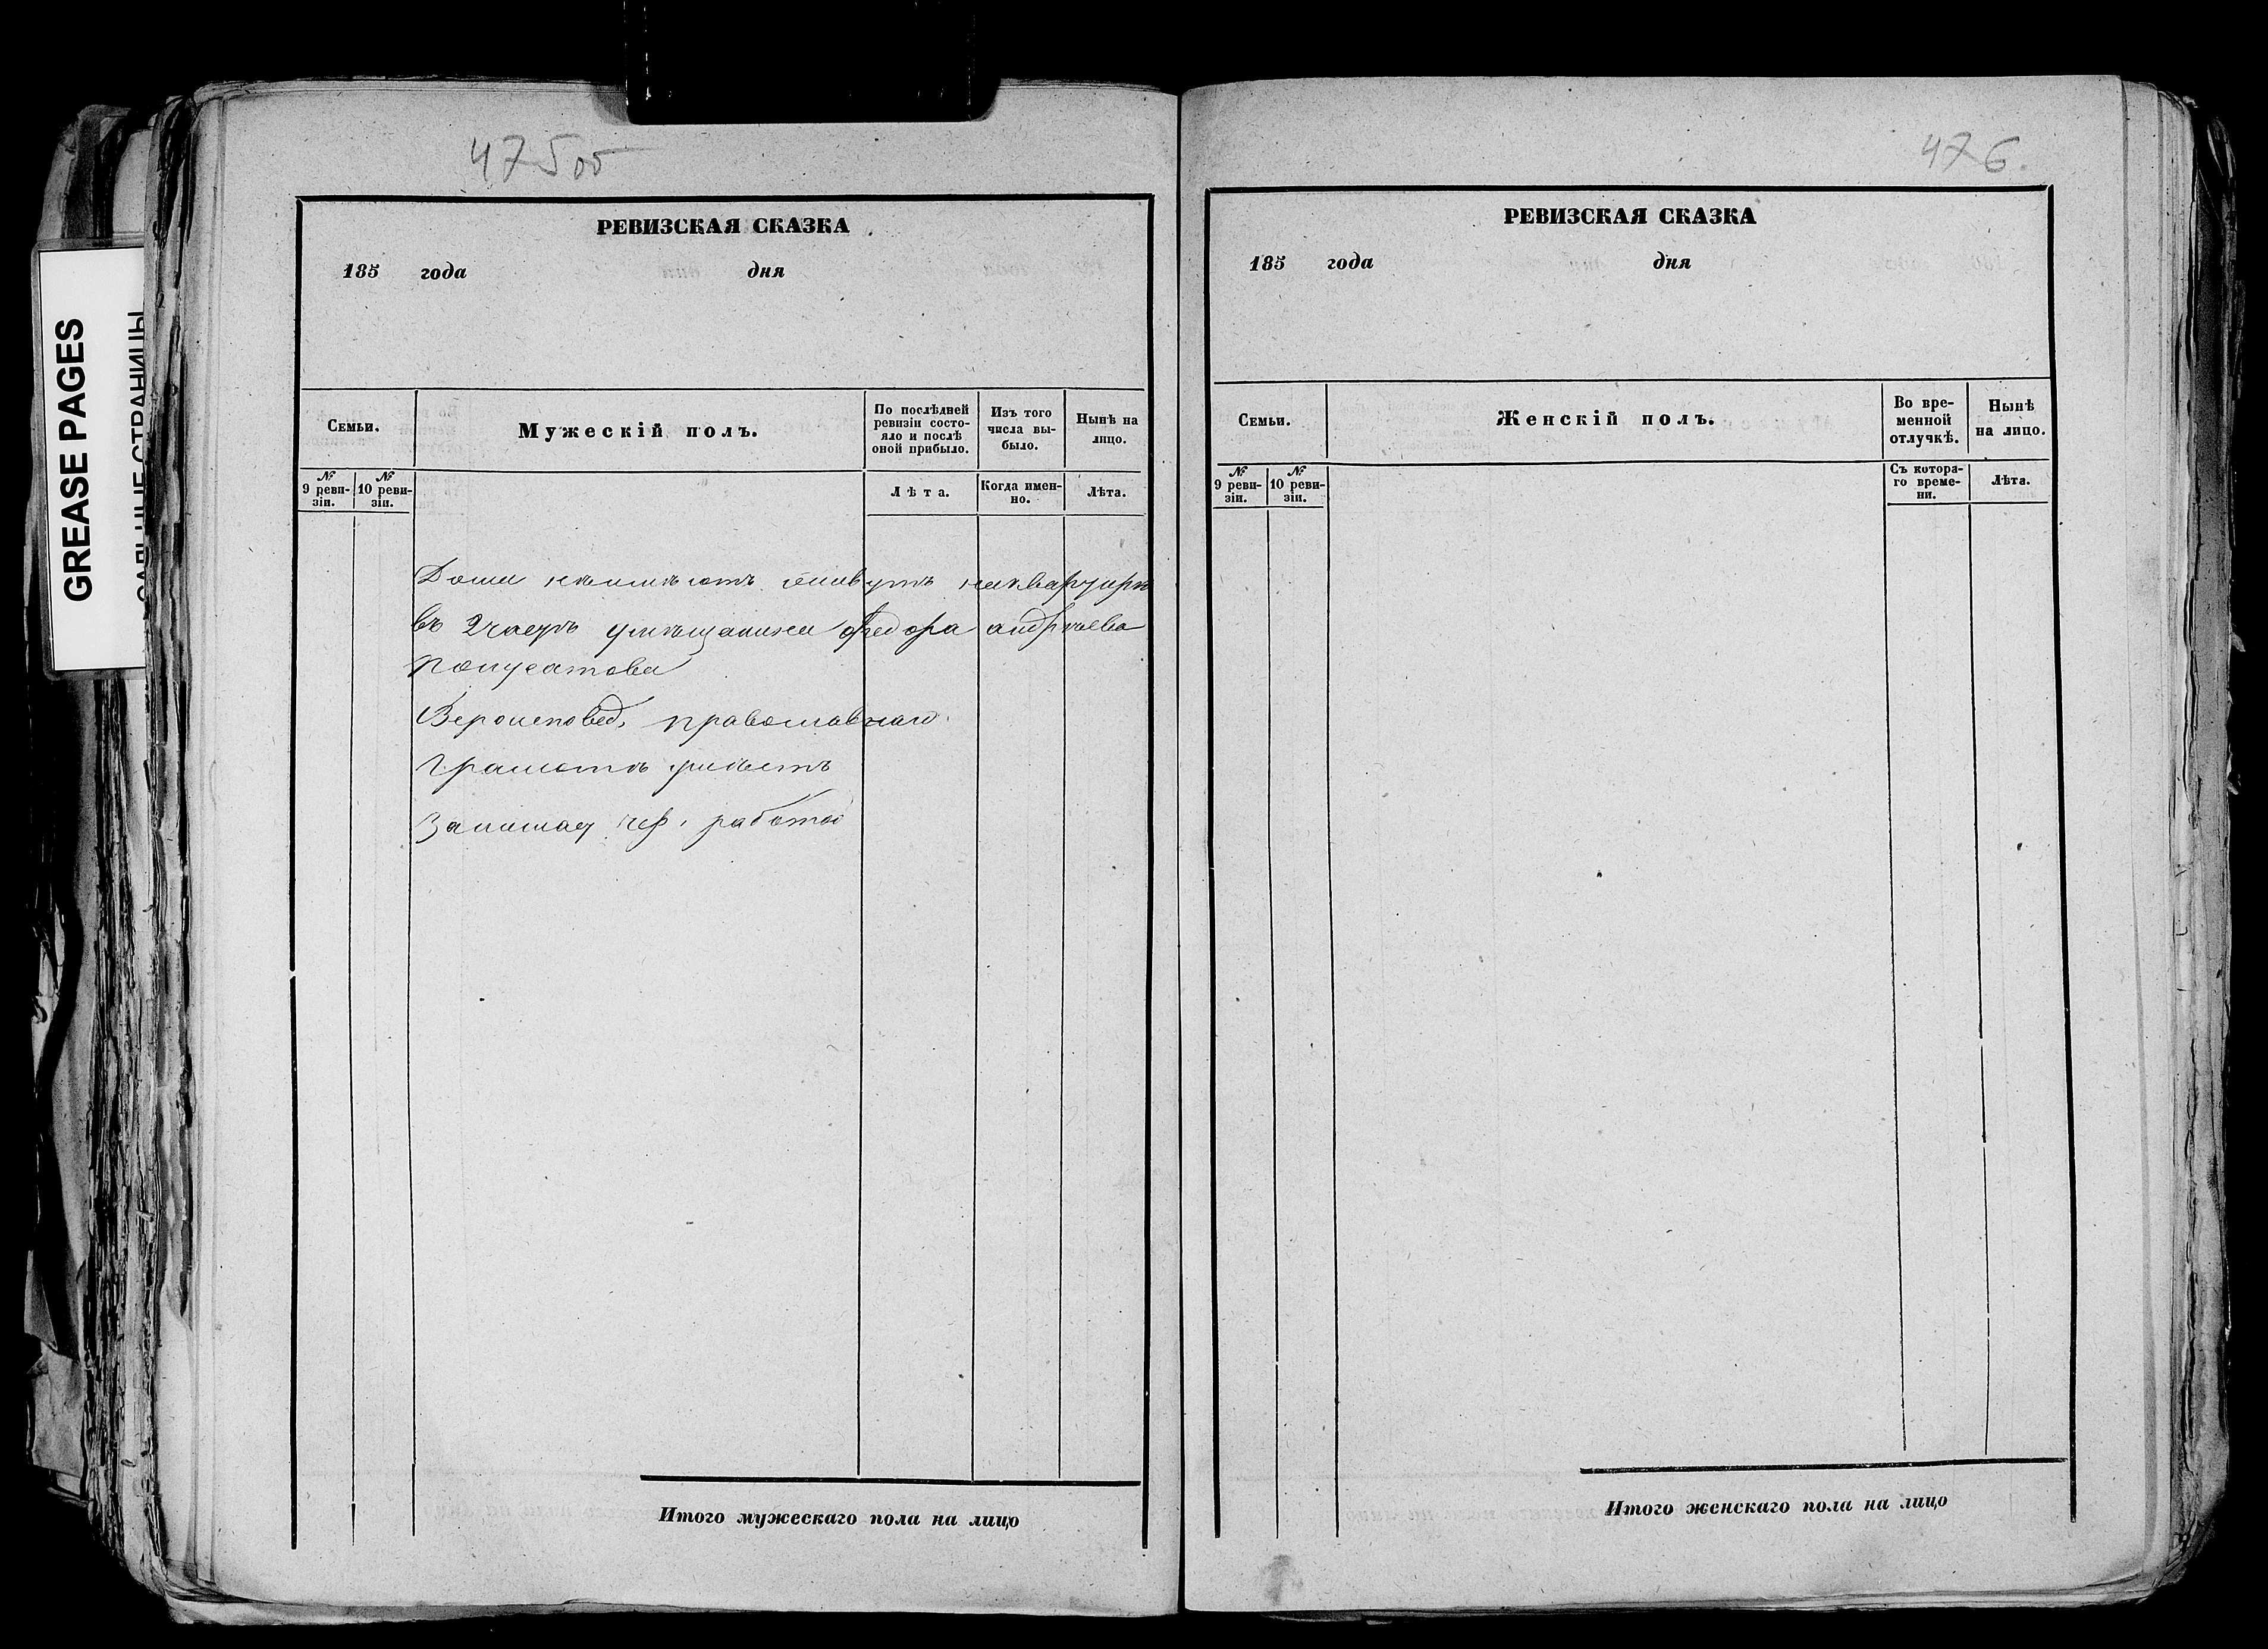 475об
РЕВИЗСКАЯ СКАЗКА
185 года дня
Семьи.
Мужескій полъ.
По послѣдней ревизіи состо-
яло и послѣ оной прибыло.
Изъ того числа вы-
было.
Нынѣ на лицо.
№ 9 реви-
зіи.
№ 10 реви-
зіи.
Лѣта.
Когда имен-
но.
Лѣта.
Дома неимѣютъ живутъ наквартирѣ
въ 2 части умѣщанина федора андрѣева
Вероисповед. православнаго
Грамотѣ умѣетъ
Занимает чер. работой
Итого мужескаго пола на лицо
476.
РЕВИЗСКАЯ СКАЗКА
185 года дня
Семьи.
Женскій полъ.
Во вре-
менной
отлучкѣ.
Нынѣ
на лицо.
№ 9 реви-
зіи.
№ 10 реви-
зіи.
Съ котора-
го време-
ни.
Лѣта.
Итого женскаго пола на лицо
GREASE PAGES